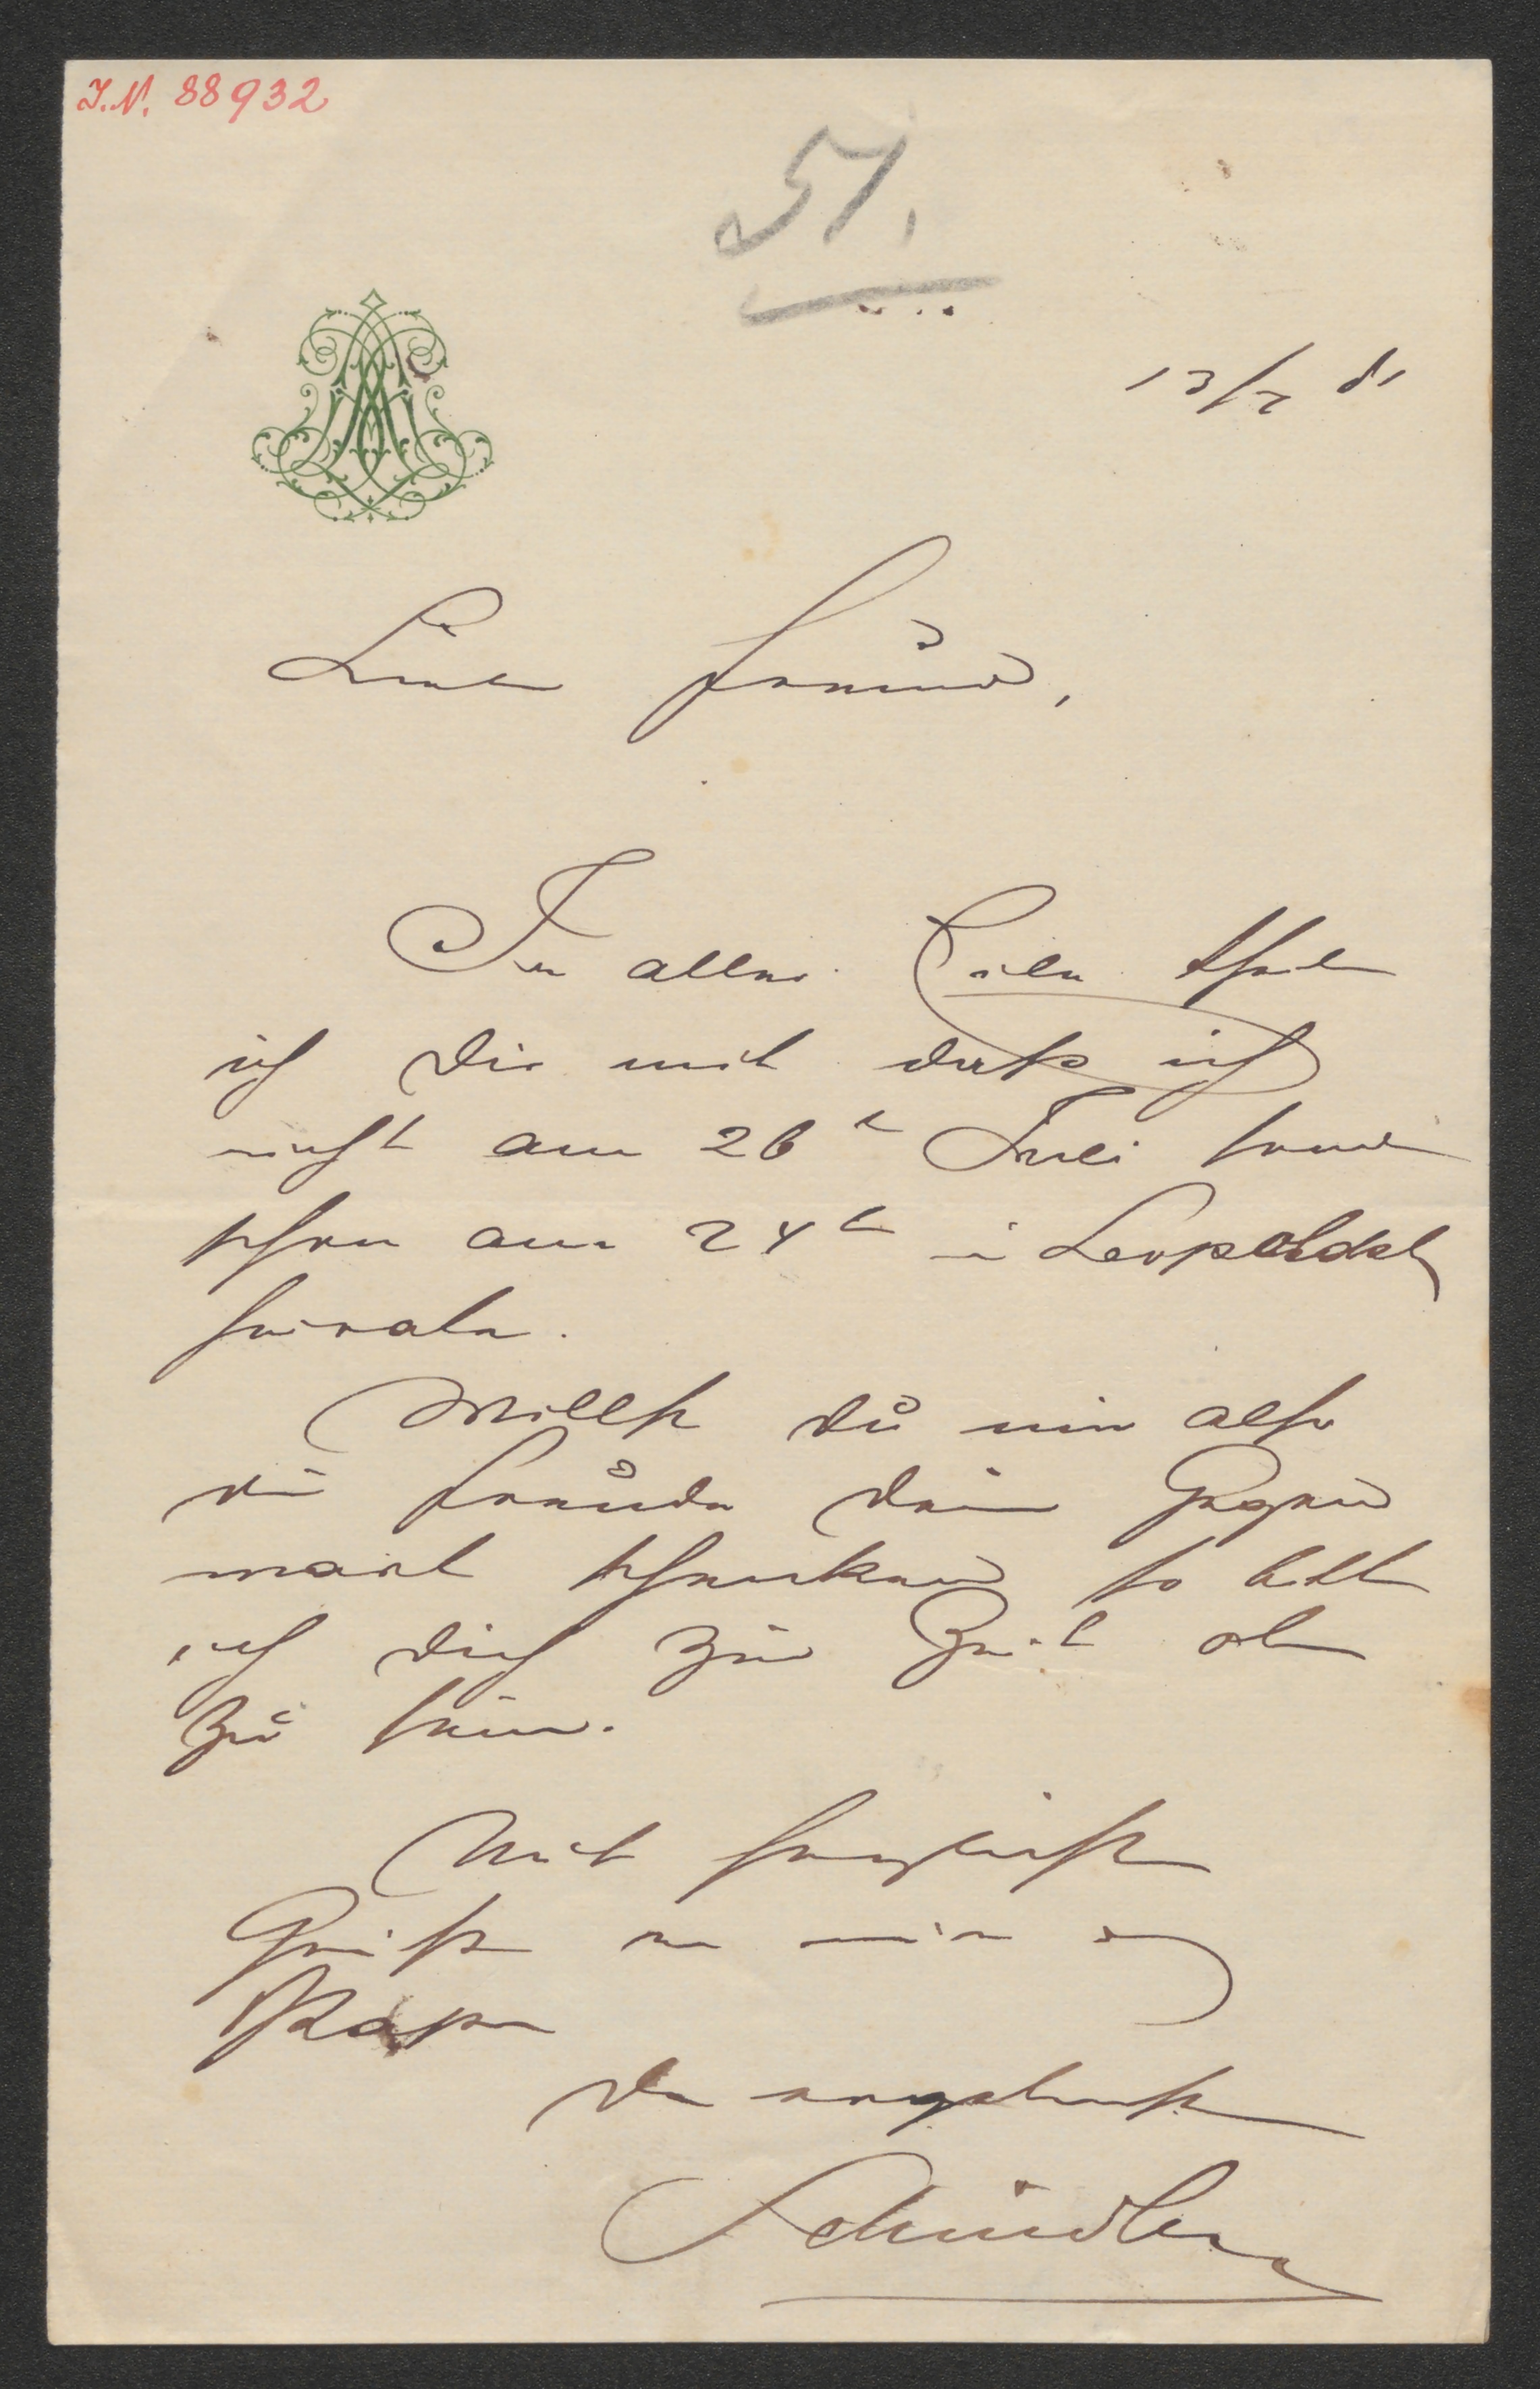 I.N. 88932
51.
13/7 81
Lieber Freund,
In aller Eile theile
ich Dir mit daß ich
nicht am 26t Juli sondern
schon am 24t in Leopoldst
heirate.
Willst Du mir also
die Freude Deiner Gegen
wart schenken so bitte
ich Dich zur Zeit
zu sein.
Mit herzlichsten
Grüßen
Papa
Dein ergebenster
Schindler